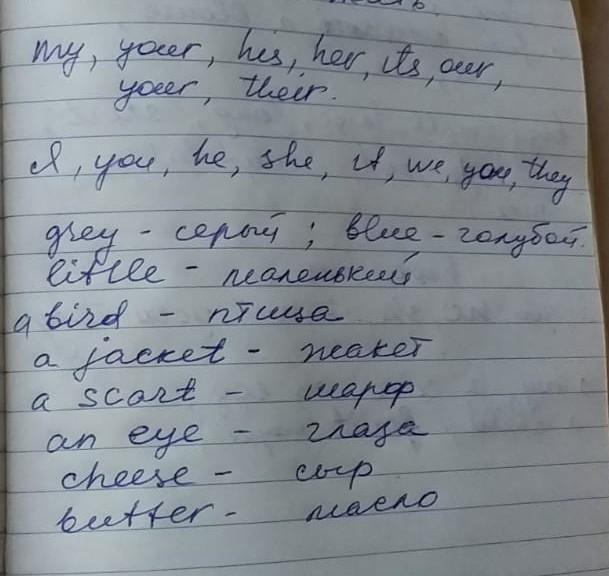 my, your, his, her, its, our,
your, their.
I, you, he, she, it, we, you, they
grey - серый ; blue - голубой.
little - маленький
a bird - птица
a jacket - жакет
a scart - шарф
an eye - глаза
cheese - сыр
butter - масло